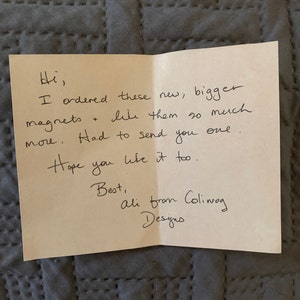 Hi,
I ordered these new, bigger
magnets + like them so much
more. Had to send you one.
Hope you like it too.
Best,
Ali from
Designs